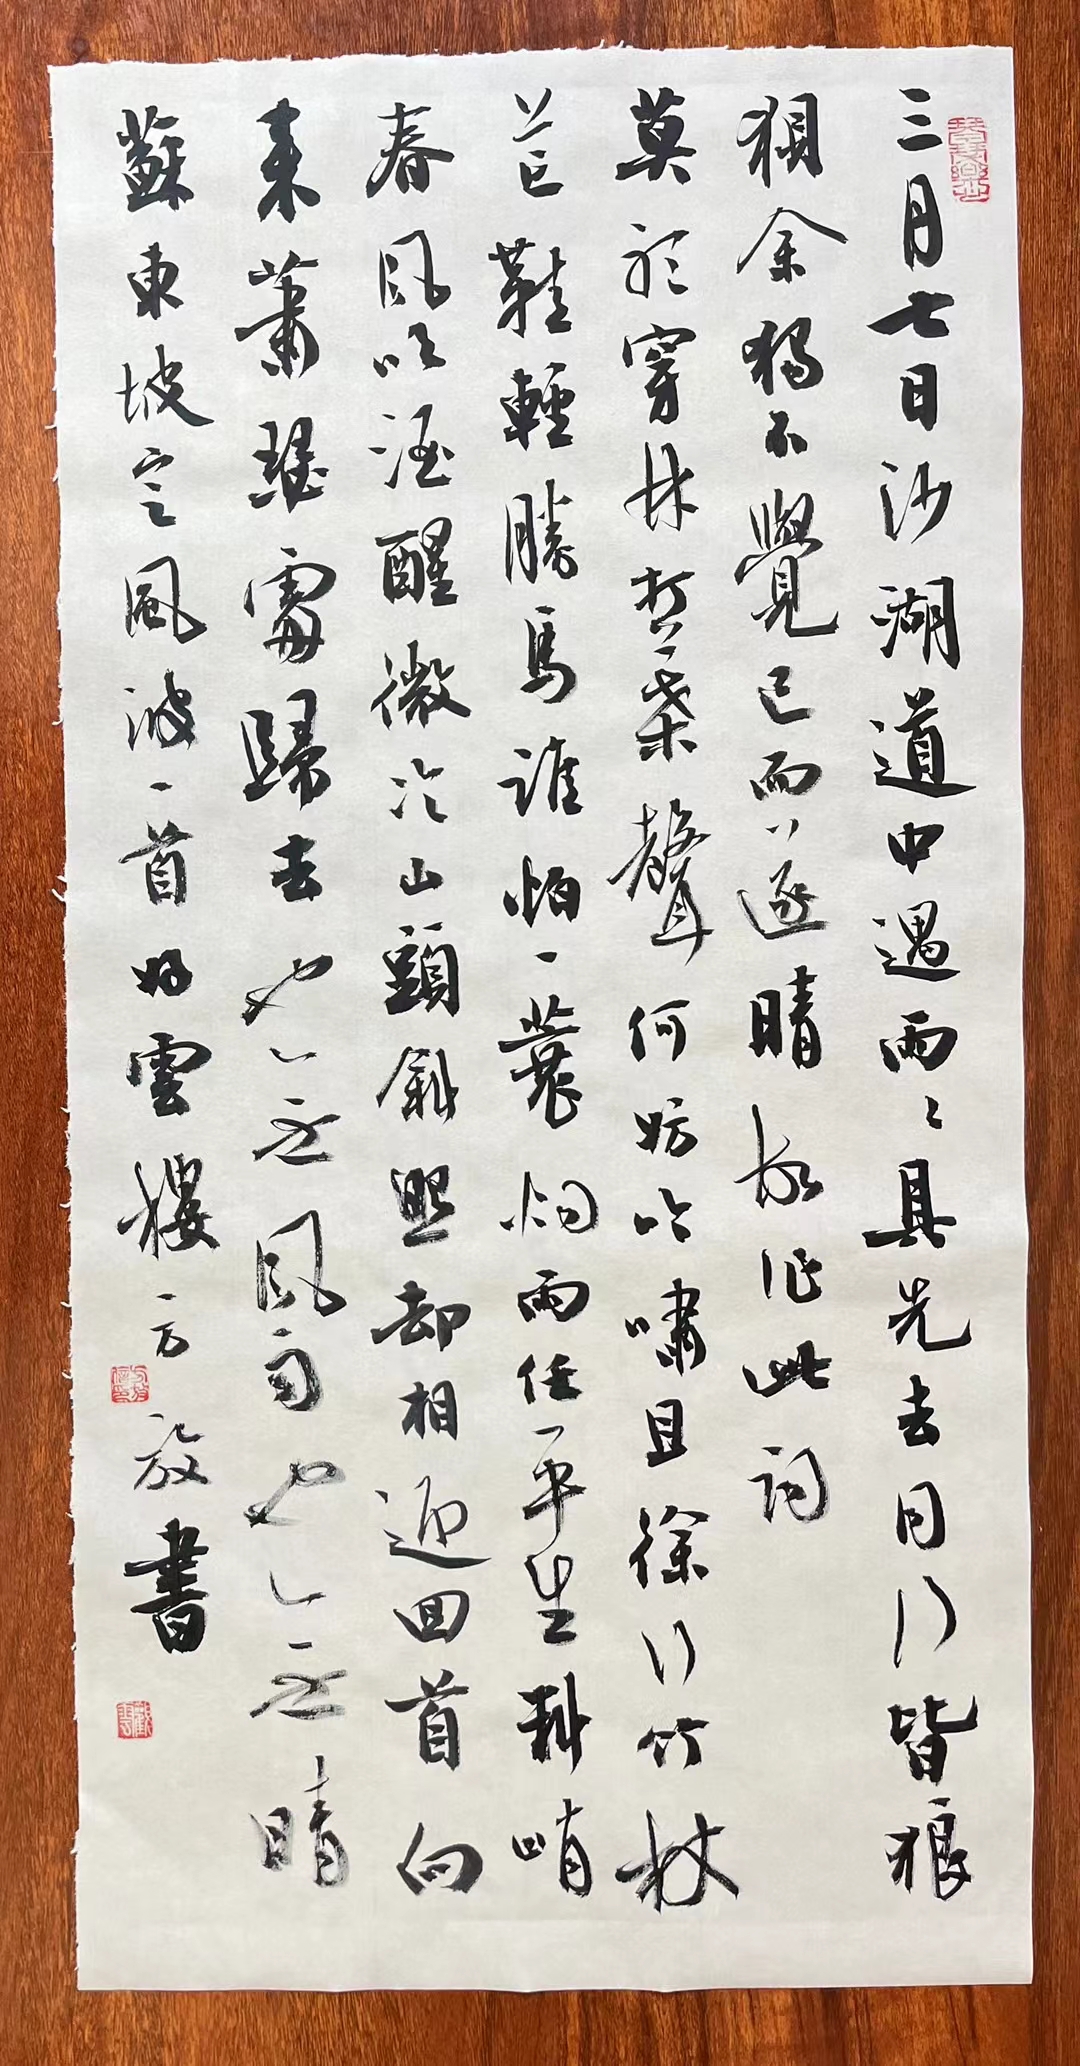 三月七日沙湖道中遇雨々具先去同行皆狼
狽余獨不覺已而遂晴故作此詞
莫聽穿林打葉聲何妨吟嘯且徐行竹杖
芒鞋輕勝馬誰怕一蓑烟雨任平生料峭
春風吹酒醒微冷山頭斜照却相迎回首向
來蕭瑟處歸去也無風雨也無晴
蘇東坡定風波一首好雲樓方放書
觀雲